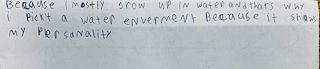 Because i mostly grow up in water and thats why
i Pickt a water enverment Beaause it shows
my Personality